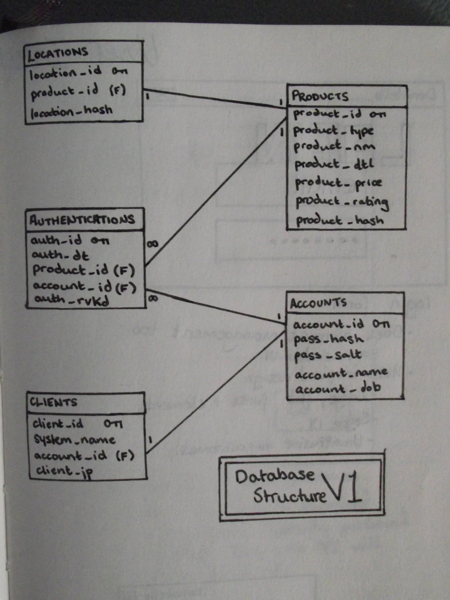 LOCATIONS
location_id
product_id (F)
location_hash
1
1
PRODUCTS
product_id
product_type
product_nm
product_dtl
product_price
product_rating
product_hash
1
AUTHENTICATIONS
auth_id
auth_dt
product_id (F)
account_id (F)
auth_rvkd
∞
∞
ACCOUNTS
account_id
pass_hash
pass_salt
account_name
account_dob
1
1
CLIENTS
client_id
system_name
account_id (F)
client_ip
1
Database
Structure V1